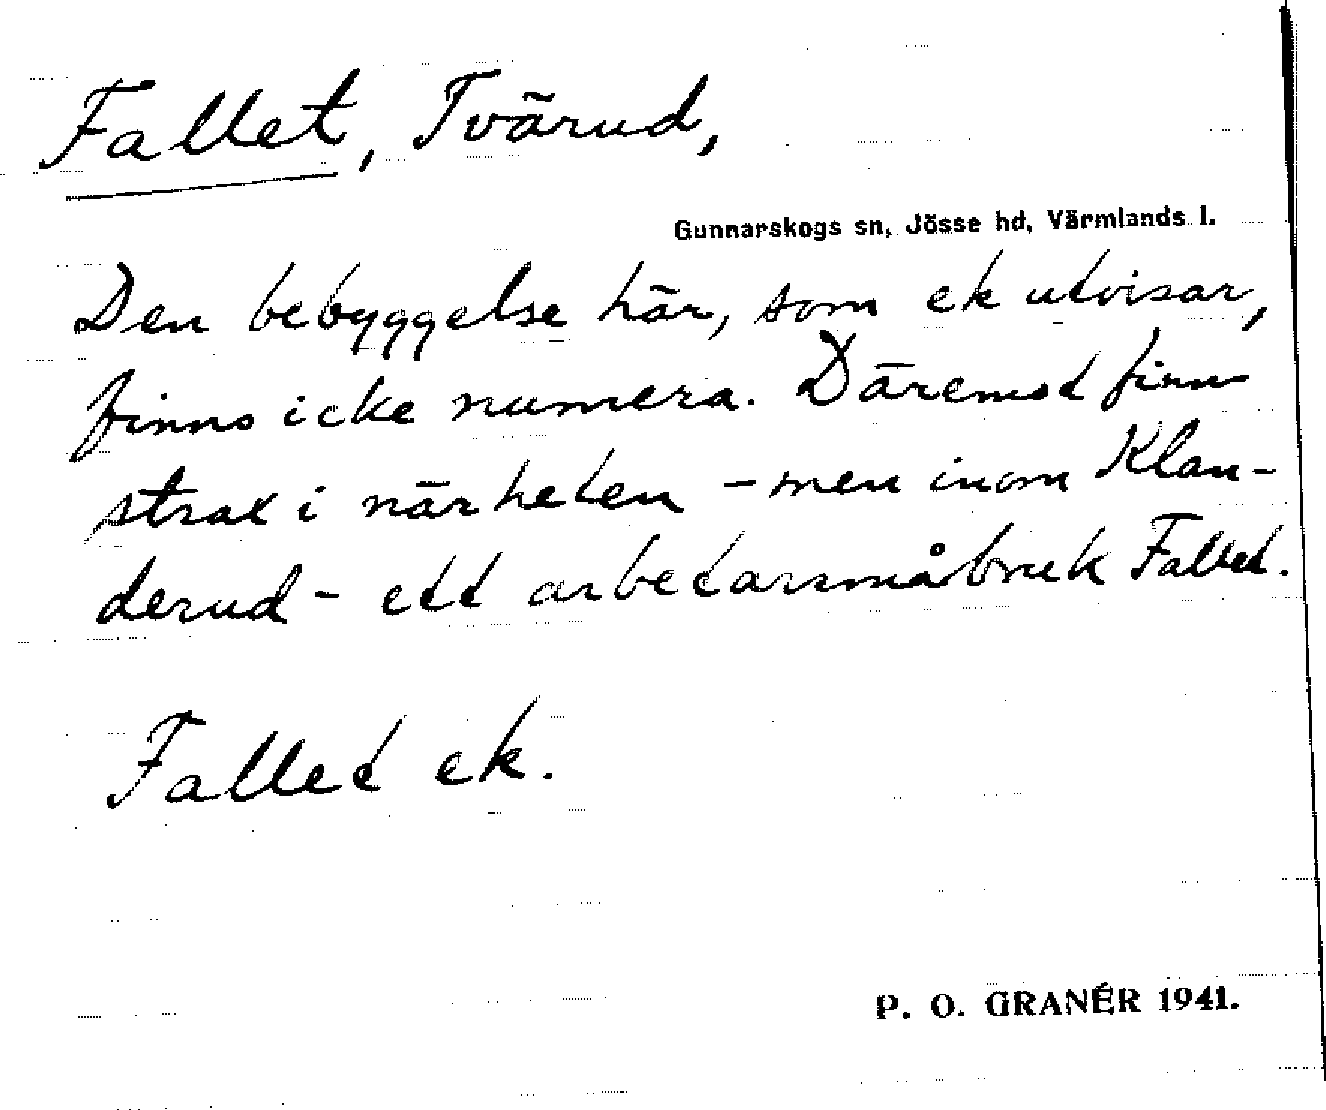 Fallet, Tvärud,
Gunnarskogs sn, Jösse hd, Värmlands l.
Den bebyggelse här, som ek utvisar,
finns icke numera. Däremot finns
strax i närheten - men inom Klan-
derud - ett arbetarsmåbruk Fallet.
Fallet ek.
P. O. GRANÉR 1941.